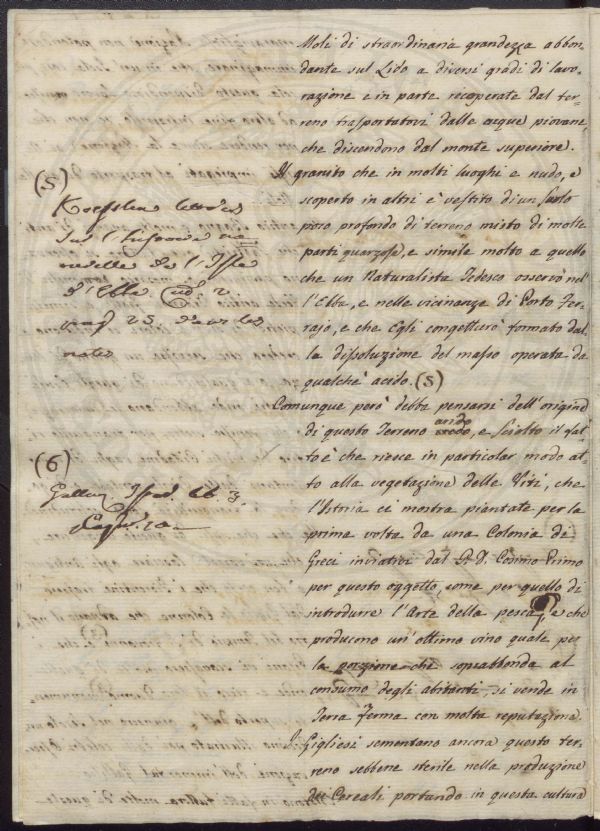 Moli di straordinaria grandezza abbon-
dante sul Lido a diversi gradi di lavo-
razione e in parte recoperate dal ter-
reno trasportatovi dalle acque piovane,
che discendono dal monte superiore.
Il granito che in molti luoghi e nudo, e
scoperto in altri è vestito di un suolo
poco profondo di terreno misto di molte
parti quarzose, e simile molto a quello
che un Naturalista Tedesco osservò nel-
l'Elba, e nelle vicinanze di Porto Fer-
rajo, e che Egli congetturò formato dal-
la dissoluzione del masso operata da
qualche acido. (5)
Comunque però debba pensarsi dell'origine
di questo Terreno arido, e sciolto il fat-
to è che riesce in particolar modo at-
to alla vegetazione delle Viti, che
l'Istoria ci mostra piantate per la
prima volta da una Colonia di
Greci inviativi dal G. D. Cosimo Primo
per questo oggetto, come per quello di
introdurre l'Arte della pesca, e che
producono un'ottimo vino quale per
la porzione che soprabbonda al
consumo degli abitanti, si vende in
Terra ferma con molta reputazione.
I Gigliesi sementano ancora questo ter-
reno sebbene sterile nella produzione
dei Cereali portando in questa cultura
(5)
Koestlin lettres
sur l'histoire na-
turelle de l'Isle
d'Elbe
2.
pag 25 dans les
notes
(6)
lib 3.